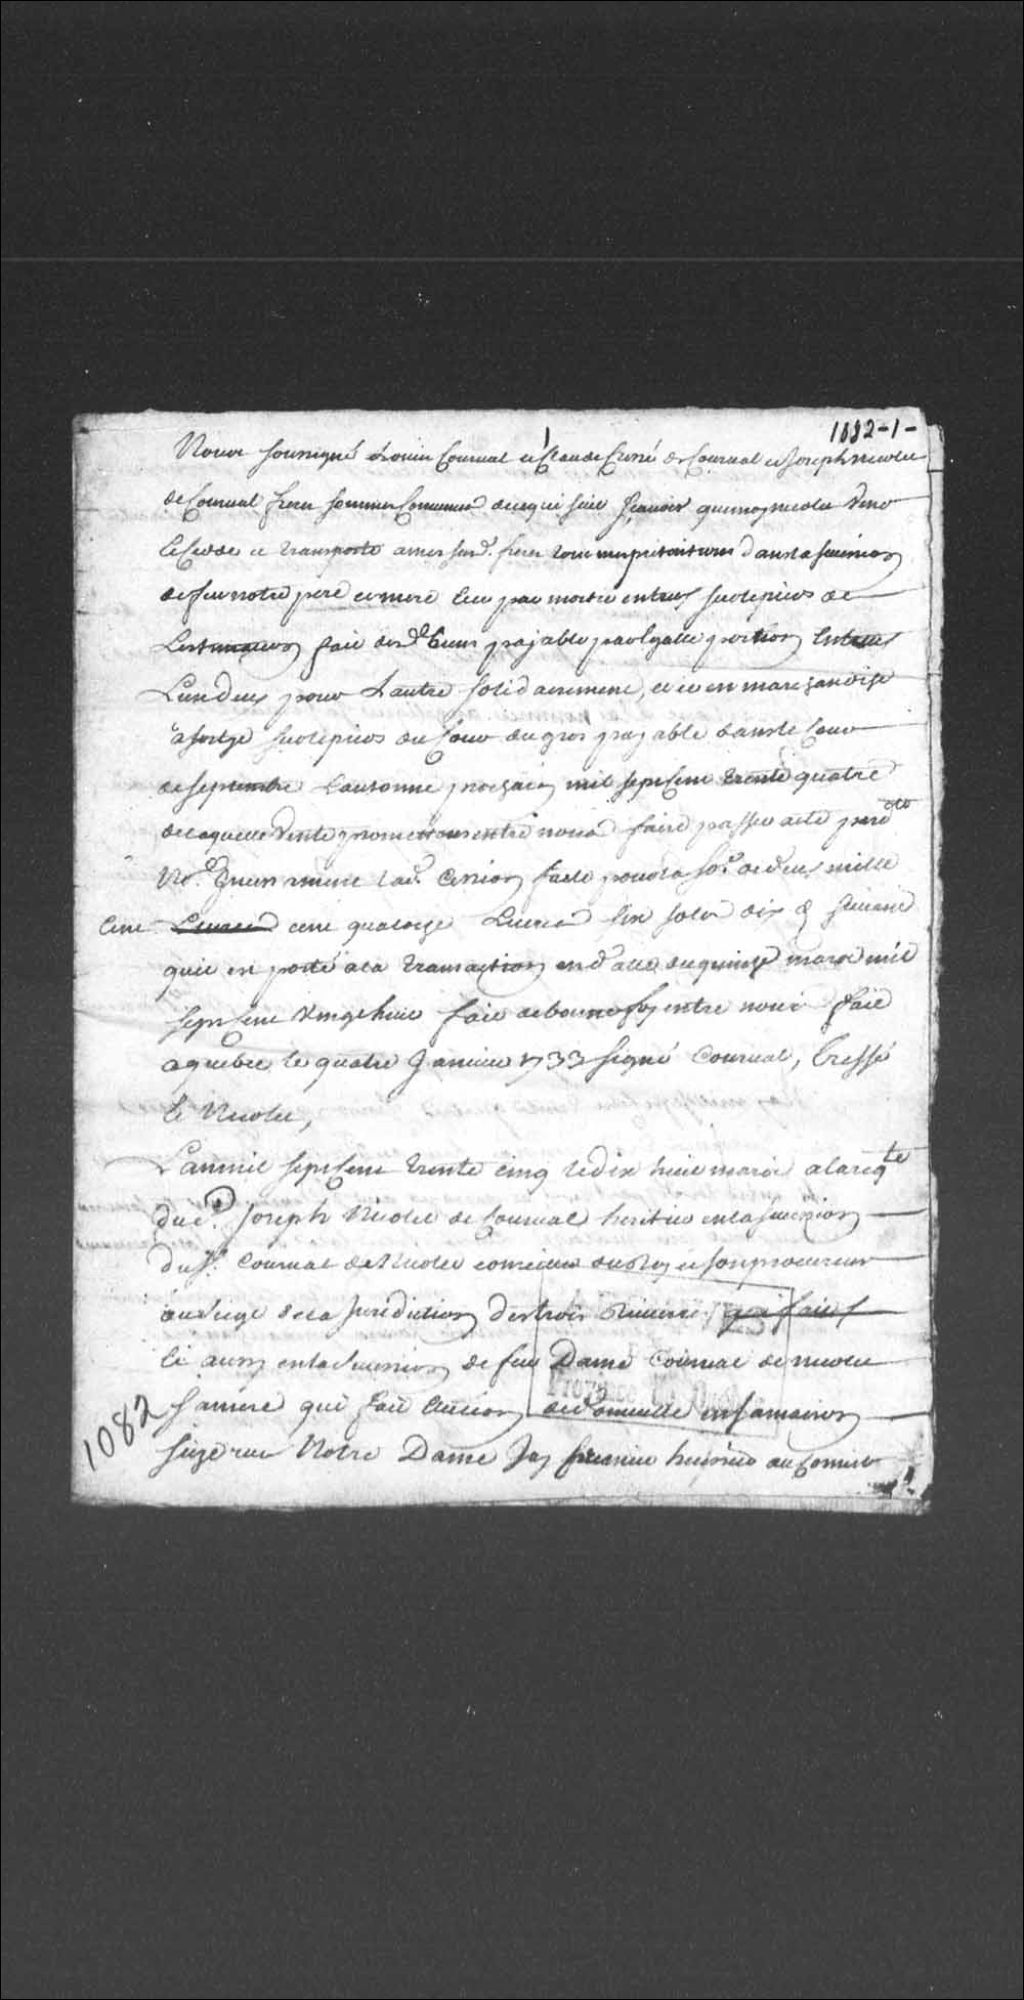 1082-1-
Nous soussigné Louis Courual et Claude Cressé de Courual et Joseph Nicolet
de Courual frere sommes Conuenus de ce qui suit Scauoir que moy nicolet vend
le cedde et transporte a mes susd. freres tous mes pretentions dans la succession
de feu notre pere et mere tieu par moitié entreux sur le pied de
L'estimation fait desd. biens payable par egalle portion Entreux
L'un deux pour L'autre solidairement, et ce en marchandise
a sortye sur le pied du Cour du gros payable dans le Cour
de septembre L'autonne prochain mil sept Cent trente quatre
de laquelle vente promettons entre nous faire passer acte pard.
No.re En un mot lad. Cession faite pour la so.e de deux mille
Cent Liures cent quatorze Liures six sols dix d suiuant
qu'il est porté a la transaction en datte du quinze mars mil
sept Cent vingt huit fait de bonne foy entre nous fait
a quebec le quatre Januier 1733 signé Courual, Cressé
le Nicolet,
L'an mil sept Cent trente cinq le dix huit mars a la req.te
du S. Joseph Nicolet de Courual heritier en la succession
du S. Courual de Nicolet con.er du Roy et son procureur
au siege de la Jurediction des trois Riuieres qui fait
le aussy en la succession de feu Dame Courual de nicolet
sa mere qui fait Election de domicille en sa maison
size rue Notre Dame Jay premier huissier au Conseil
1082